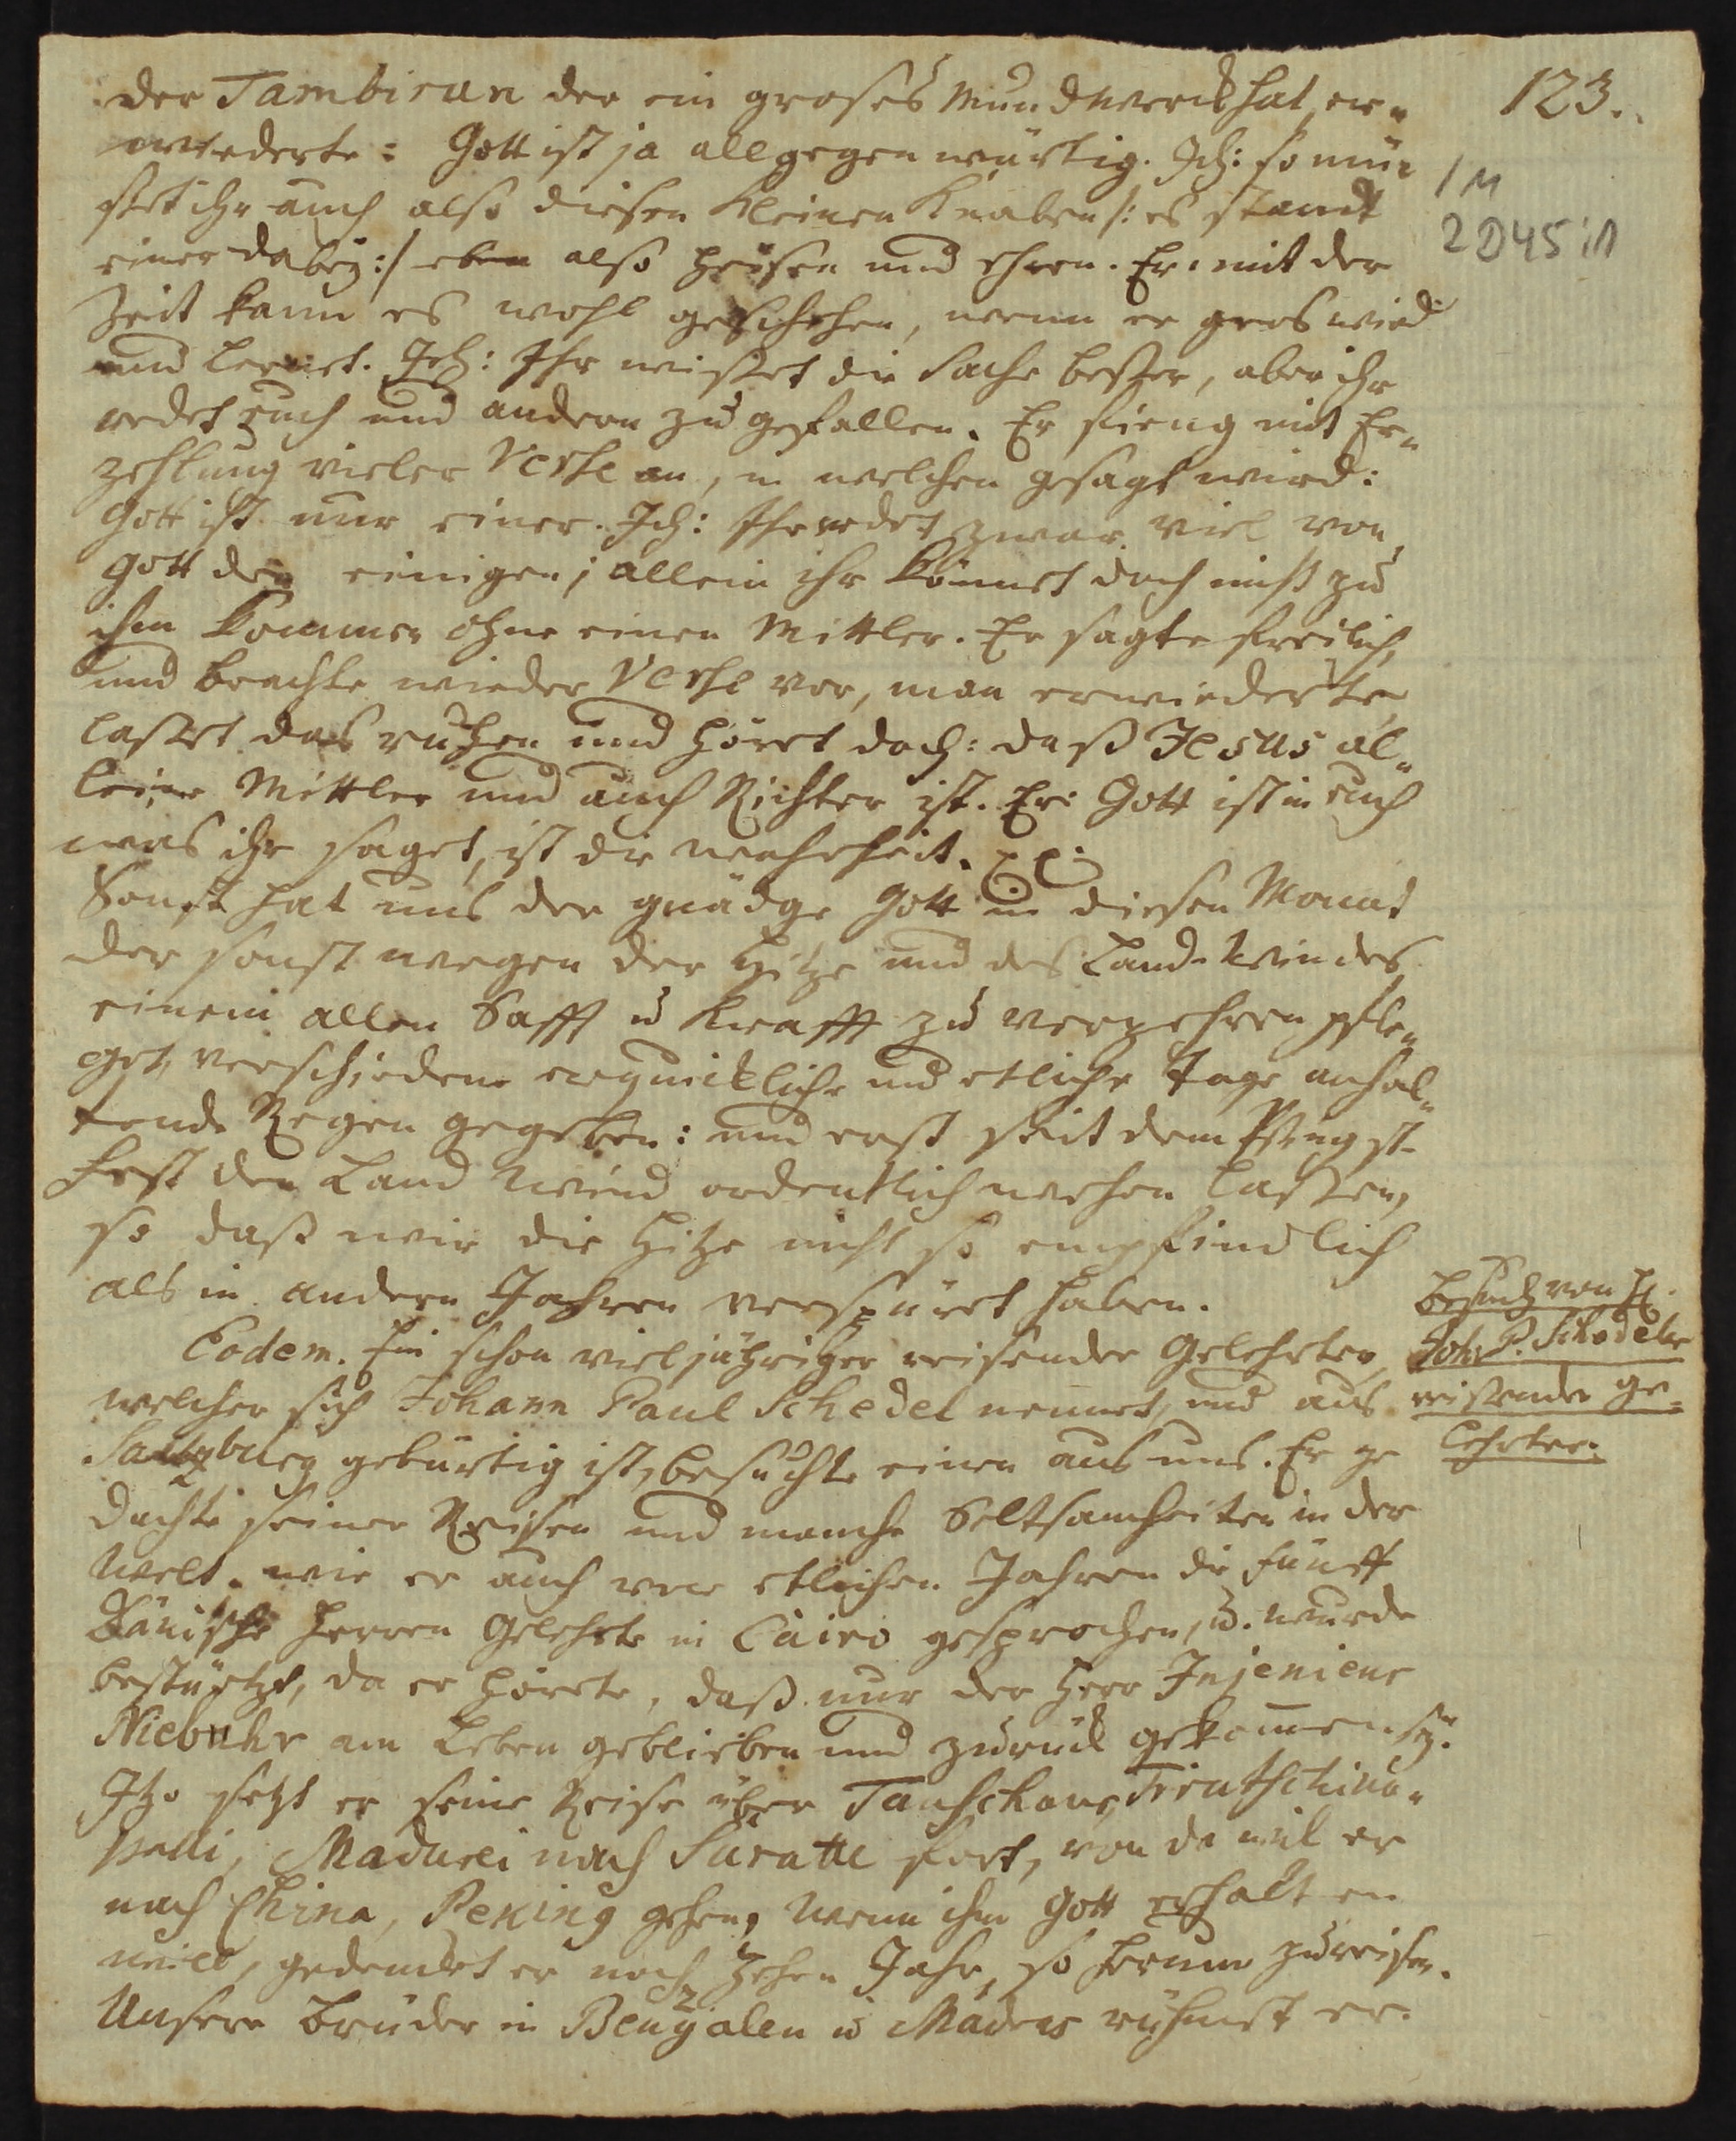 123.
1 M
2 D45:11
der Tambiran der ein großes Mundwerck hat, er-
wiederte: Gott ist ja allgegenwärtig. Ich: so mü-
stet ihr auch also diesen kleinen Knaben /: es stand
einer dabeÿ :/ eben also heisen und ehren. Er: mit der
Zeit kann es wohl geschehen, wenn er gros wird
und lernet. Ich: Ihr wißet die Sache beßer, aber ihr
redet euch und andern zu gefallen. Er fieng mit Er-
zehlung vieler Verse an, in welchen gesagt wird:
Gott ist nur einer. Ich: Ihr redet zwar viel von
Gott den einigen; allein ihr könnet doch nicht zu
ihm kommen ohne einen Mittler. Er sagte freilich,
und brachte wieder Verse vor, man erwiederte,
laßet das ruhen und höret doch: daß Jesus al-
leine Mittler und auch Richter ist. Er: Gott ist in euch
was ihr saget, ist die wahrheit.
Sonst hat uns der gnädge Gott in diesen Monat
der sonst wegen der Hitze und des Land-Windes
einem allen Safft u Krafft zu verzehren pfle-
get, verschiedene erquickliche und etliche Tage anhal-
tende Regen gegeben: und erst seit dem Pfingst-
Fest den Land Wind ordentlich wehen laßen,
so daß wir die Hitze nicht so empfindlich
als in andern Jahren verspüret haben.
Eodem. Ein schon vieljähriger reisender Gelehrter,
welcher sich Johann Paul Schedel nennet, und aus
Saltzburg gebürtig ist, besuchte einen aus uns. Er ge
dachte seiner Reisen und manche Seltsamheiten in der
Welt. wie er auch vor etlichen Jahren die fünff
Dänische Herren Gelehrte in Cairo gesprochen, u. wurde
bestürtzt, da er hörete, daß nur der Herr Injenieur
Niebuhr am Leben geblieben und zurück gekommen seÿ.
Itzo setzt er seine Reise über Tanschaur, Tirutschina-
palli, Madurei nach Suratte fort, von da will er
nach China, Peking gehen, wenn ihm Gott erhalten
will, gedencket er noch zehen Jahr so herum zu reisen.
Unsere Brüder in Bengalen u Madras rühmet er.
Besuch von H.
Joh. P. Schedel
reisender ge-
lehrter.